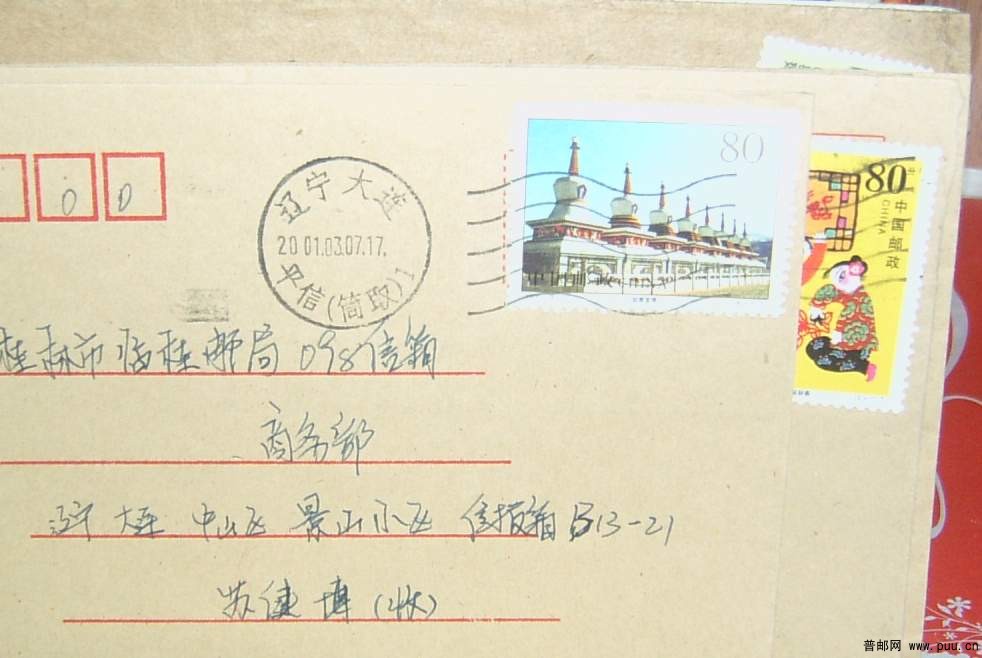 0 0
辽宁大连
2001.03.07.17.
中信(筒取)1
80
80
中国邮政
CHINA
桂林市临桂邮局098信箱
商务部
辽宁 大连 中山区 景山小区 信报箱 B13-21
苏健博(收)
普邮网 www.puu.cn